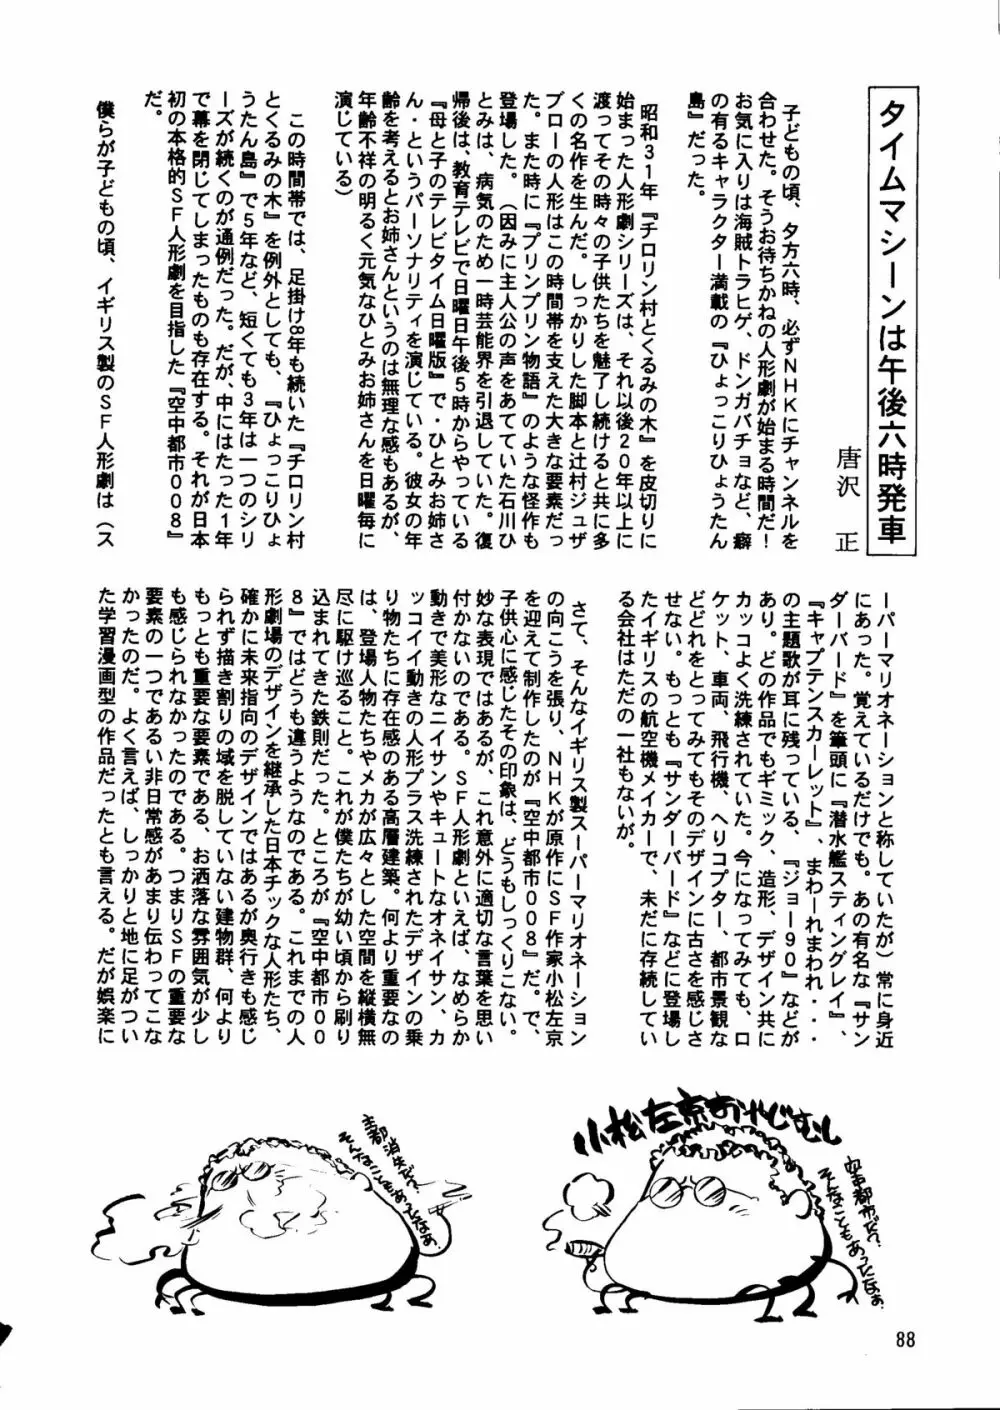 タイムマシーンは午後六時発車
唐沢　正
子どもの頃、夕方六時、必ずNHKにチャンネルを
合わせた。そうお待ちかねの人形劇が始まる時間だ！
お気に入りは海賊トラヒゲ、ドンガバチョなど、癖
の有るキャラクター満載の『ひょっこりひょうたん
島』だった。
昭和３１年『チロリン村とくるみの木』を皮切りに
始まった人形劇シリーズは、それ以後２０年以上に
渡ってその時々の子供たちを魅了し続けると共に多
くの名作を生んだ。しっかりした脚本と辻村ジュザ
ブローの人形はこの時間帯を支えた大きな要素だっ
た。また時に『プリンプリン物語』のような怪作も
登場した。（因みに主人公の声をあてていた石川ひ
とみは、病気のため一時芸能界を引退していた。復
帰後は、教育テレビで日曜日午後５時からやっている
『母と子のテレビタイム日曜版』で・ひとみお姉さ
ん・というパーソナリティを演じている。彼女の年
齢を考えるとお姉さんというのは無理な感もあるが、
年齢不祥の明るく元気なひとみお姉さんを日曜毎に
演じている）
この時間帯では、足掛け８年も続いた『チロリン村
とくるみの木』を例外としても、『ひょっこりひょ
うたん島』で５年など、短くても３年は一つのシリ
ーズが続くのが通例だった。だが、中にはたった１年
で幕を閉じてしまったものも存在する。それが日本
初の本格的ＳＦ人形劇を目指した『空中都市００８』
だ。
僕らが子どもの頃、イギリス製のＳＦ人形劇は（ス
ーパーマリオネーションと称していたが）常に身近
にあった。覚えているだけでも。あの有名な『サン
ダーバード』を筆頭に『潜水艦スティングレイ』、
『キャプテンスカーレット』、まわーれまわれ・・・
の主題歌が耳に残っている、『ジョー９０』などが
あり。どの作品でもギミック、造形、デザイン共に
カッコよく洗練されていた。今になってみても、ロ
ケット、車両、飛行機、へりコプター、都市景観な
どどれをとってみてもそのデザインに古さを感じさ
せない。もっとも『サンダーバード』などに登場し
たイギリスの航空機メイカーで、未だに存続してい
る会社はただの一社もないが。
さて、そんなイギリス製スーパーマリオネーション
の向こうを張り、ＮＨＫが原作にＳＦ作家小松左京
を迎えて制作したのが『空中都市００８』だ。で、
子供心に感じたその印象は、どうもしっくりこない。
妙な表現ではあるが、これ意外に適切な言葉を思い
付かないのである。ＳＦ人形劇といえば、なめらか
動きで美形なニイサンやキュートなオネイサン、カ
ッコイイ動きの人形プラス洗練されたデザインの乗
り物たちに存在感のある高層建築。何より重要なの
は、登場人物たちやメカが広々とした空間を縦横無
尽に駆け巡ること。これが僕たちが幼い頃から刷り
込まれてきた鉄則だった。ところが『空中都市００
８』ではどうも違うようなのである。これまでの人
形劇場のデザインを継承した日本チックな人形たち、
確かに未来指向のデザインではあるが奥行きも感じ
られず描き割りの域を脱していない建物群、何より
もっとも重要な要素である、お洒落な雰囲気が少し
も感じられなかったのである。つまりＳＦの重要な
要素の一つであるい非日常感があまり伝わってこな
かったのだ。よく言えば、しっかりと地に足がつい
た学習漫画型の作品だったとも言える。だが娯楽に
小松左京おやじむし
空中都市だ？
そんなこともあったなぁ。
首都消失だ？
そんなこともあったなぁ。
88